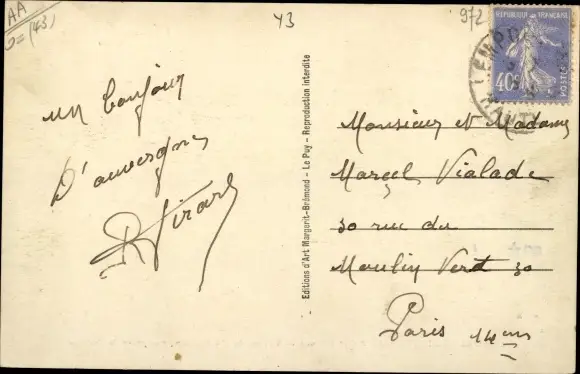 AA
D=(43)
43
972
REPUBLIQUE FRANÇAISE
40c
POSTES
LEMPD
un bonjour
D'auvergne
R Girard
Editions d'Art Margerit-Brémond - Le Puy - Reproduction interdite
Monsieur et Madame
Marcel Vialade
30 rue du
Moulin Vert 30
Paris 14em